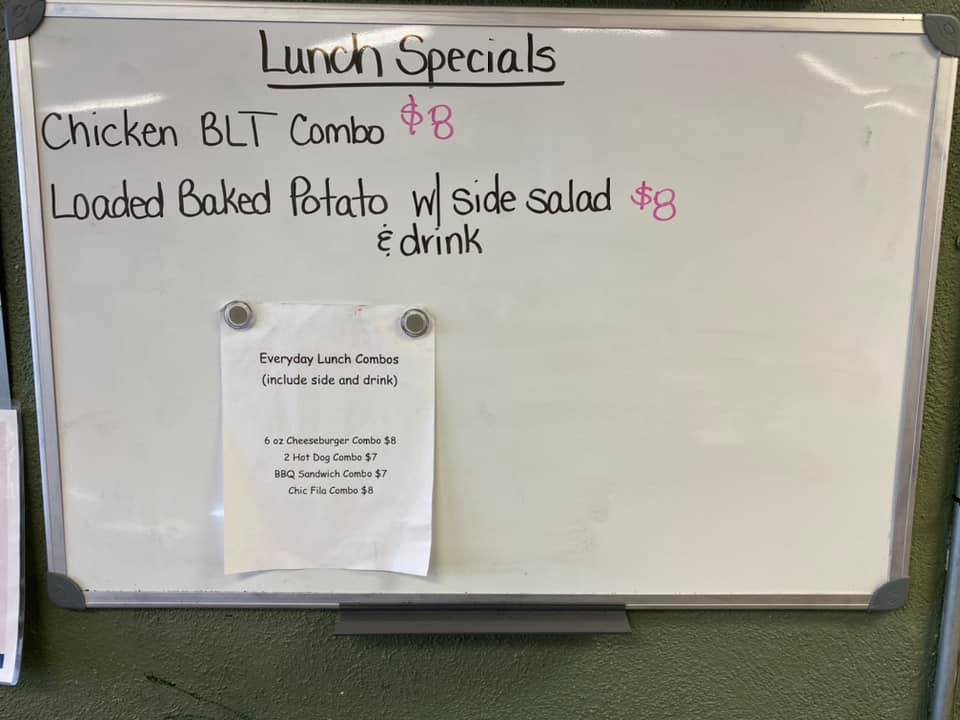 Lunch Specials
Chicken BLT Combo $8
Loaded Baked Potato w/ side salad $8
& drink
Everyday Lunch Combos
(include side and drink)
6 oz Cheeseburger Combo $8
2 Hot Dog Combo $7
BBQ Sandwich Combo $7
Chic Fila Combo $8